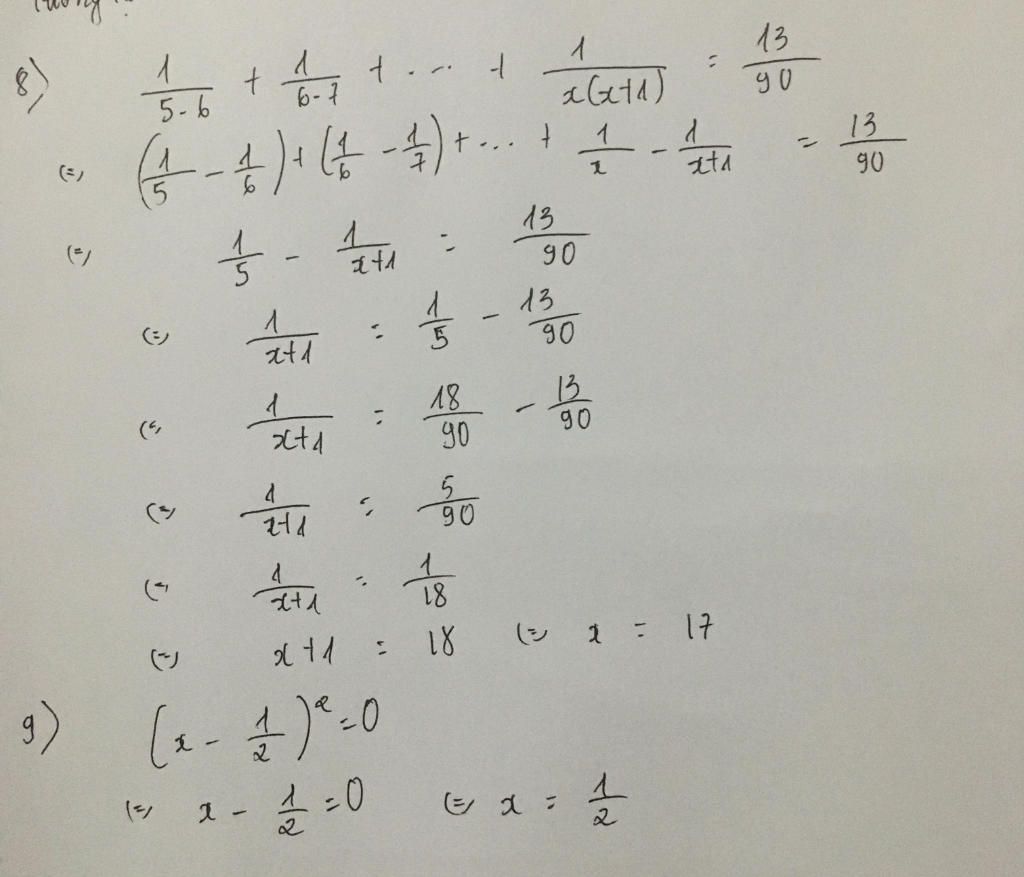 8) 1/(5-6) + 1/(6-7) + ... + 1/(x(x+1)) = 13/90
(=) (1/5 - 1/6) + (1/6 - 1/7) + ... + 1/x - 1/(x+1) = 13/90
(=) 1/5 - 1/(x+1) = 13/90
(=) 1/(x+1) = 1/5 - 13/90
(=) 1/(x+1) = 18/90 - 13/90
(=) 1/(x+1) = 5/90
(=) 1/(x+1) = 1/18
(=) x+1 = 18 (=) x = 17
9) (x - 1/2)² = 0
(=) x - 1/2 = 0 (=) x = 1/2